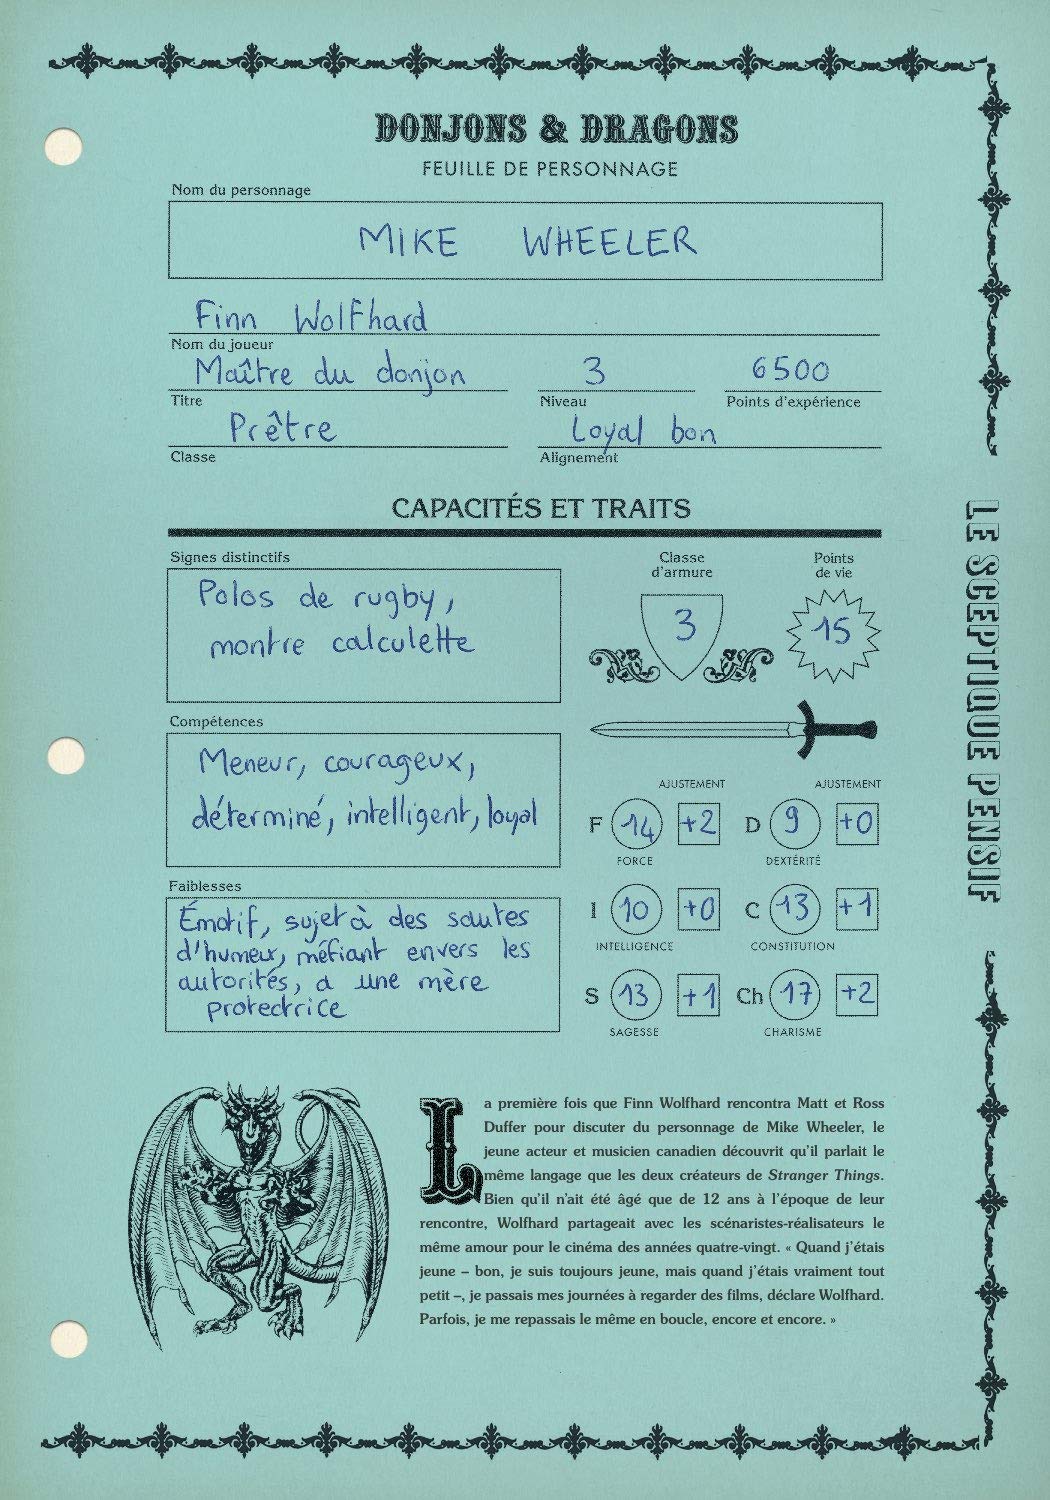 DONJONS & DRAGONS
FEUILLE DE PERSONNAGE
Nom du personnage
MIKE WHEELER
Finn Wolfhard
Nom du joueur
Maître du donjon 3 6500
Titre Niveau Points d'expérience
Prêtre Loyal bon
Classe Alignement
CAPACITÉS ET TRAITS
Signes distinctifs
Polos de rugby,
montre calculette
Classe
d'armure
3
Points
de vie
15
Compétences
Meneur, courageux,
déterminé, intelligent, loyal
Faiblesses
Émotif, sujet à des sautes
d'humeur, méfiant envers les
autorités, a une mère
protectrice
AJUSTEMENT AJUSTEMENT
F 14 +2 D 9 +0
FORCE DEXTÉRITÉ
I 10 +0 C 13 +1
INTELLIGENCE CONSTITUTION
S 13 +1 Ch 17 +2
SAGESSE CHARISME
LE SCEPTIQUE PENSIF
La première fois que Finn Wolfhard rencontra Matt et Ross
Duffer pour discuter du personnage de Mike Wheeler, le
jeune acteur et musicien canadien découvrit qu'il parlait le
même langage que les deux créateurs de Stranger Things.
Bien qu'il n'ait été âgé que de 12 ans à l'époque de leur
rencontre, Wolfhard partageait avec les scénaristes-réalisateurs le
même amour pour le cinéma des années quatre-vingt. « Quand j'étais
jeune – bon, je suis toujours jeune, mais quand j'étais vraiment tout
petit –, je passais mes journées à regarder des films, déclare Wolfhard.
Parfois, je me repassais le même en boucle, encore et encore. »